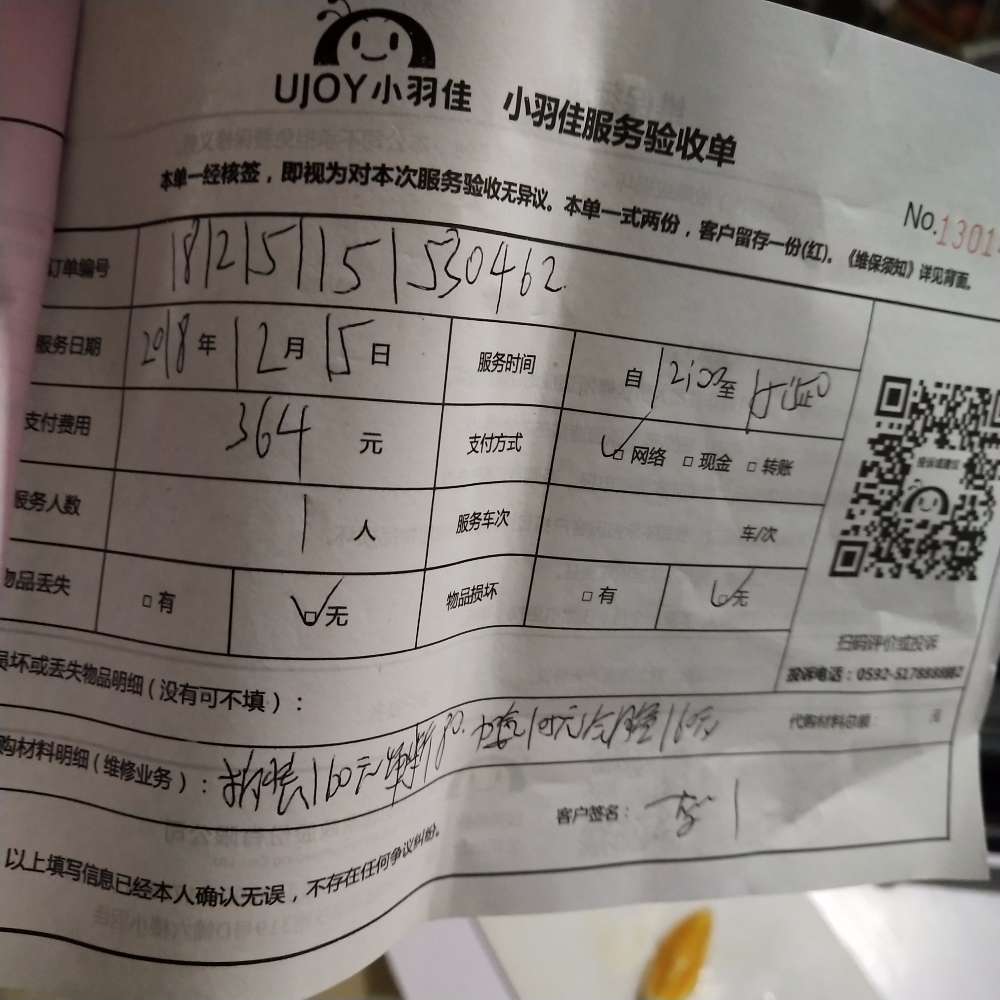 UJOY小羽佳 小羽佳服务验收单
本单一经核签，即视为对本次服务验收无异议。本单一式两份，客户留存一份(红)。《维保须知》详见背面。
No.1301
订单编号 1812151151530462
服务日期 2018年12月15日 服务时间 自12:00至
支付费用 364元 支付方式 □网络 □现金 □转账
服务人数 1人 服务车次 车/次
物品丢失 □有 □无 物品损坏 □有 □无
扫码评价或投诉
投诉电话：0592-5178888
损坏或丢失物品明细(没有可不填)：
购材料明细(维修业务)： 160元 10元 160元 代购材料总额： 元
客户签名：
以上填写信息已经本人确认无误，不存在任何争议纠纷。